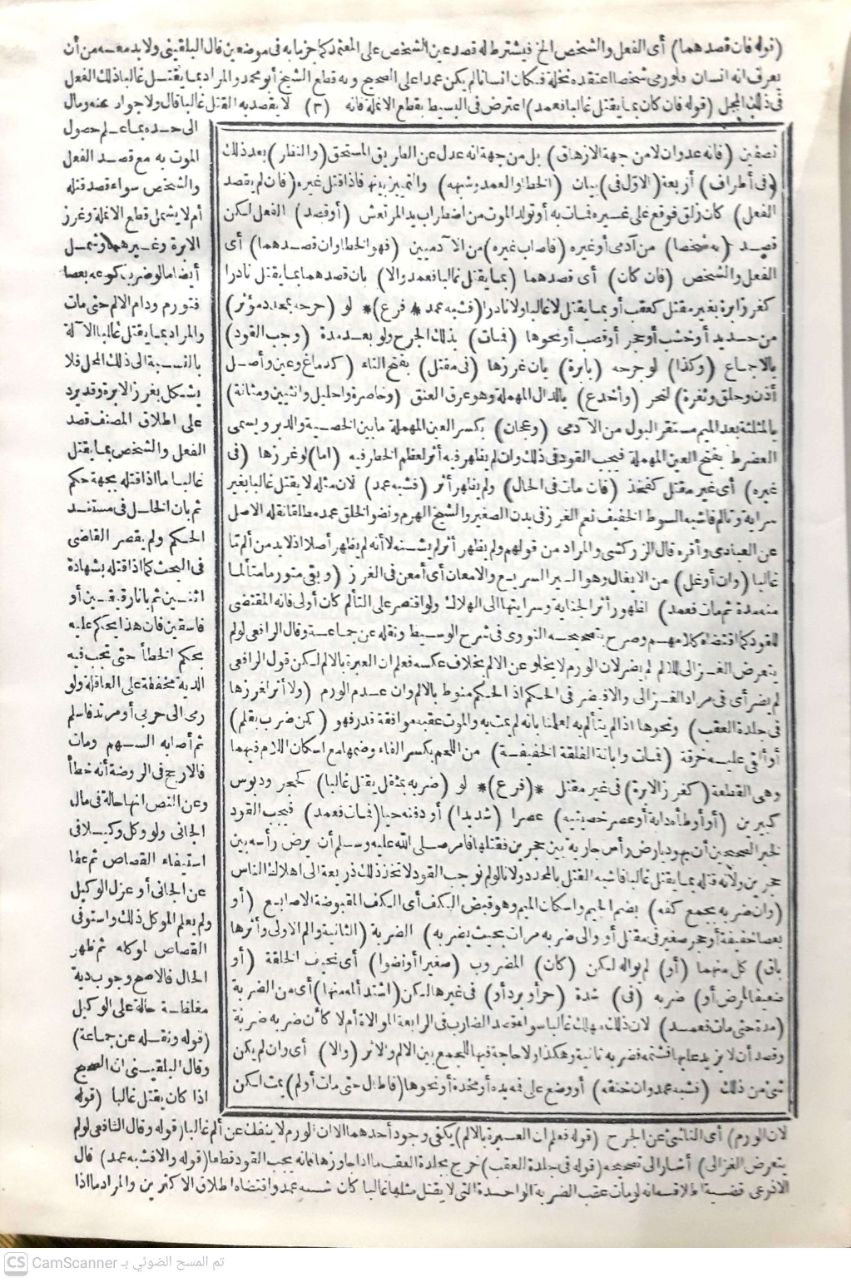 (قوله فان قصدهما) أى الفعل والشخص الخ فيشترط له قصد عين الشخص على المعتمد كما جزما به فى موضعين قال البلقينى ولا بد معه من أن
يعرف انه انسان فلو رمى شخصا اعتقده نخلة فكان انسانا لم يكن عمدا على الصحيح وبه قطع الشيخ أبو محمد والمراد بما يقتل غالبا ذلك الفعل
فى ذلك المحل (قوله فان كان بما يقتل غالبا فعمد) اعترض فى البسيط بقطع الانملة فانه (٣) لا يقصد به القتل غالبا قال ولا جواب عنه ومال
نصفين (فانه عدوان لا من جهة الازهاق) بل من جهة انه عدل عن الطريق المستحق (والنظر) بعد ذلك
(فى أطراف) أربعة (الاول فى) بيان (الخطا والعمد وشبهه) والتمييز بينها فاذا قتل غيره (فان لم يقصد
الفعل) كان زلق فوقع على غيره فمات به أو تولد الموت من اضطراب يد المرتعش (أو قصد) الفعل لكن
قصد (به شخصا) من آدمى أو غيره (فاصاب غيره) من الآدميين (فهو الخطا وان قصدهما) أى
الفعل والشخص (فان كان) أى قصدهما (بما يقتل غالبا فعمد والا) بان قصدهما بما يقتل نادرا
كغرز ابرة بغير مقتل كعقب أو بما يقتل لا غالبا ولا نادرا (فشبه عمد * فرع) * لو (جرحه بمحدد مؤثر)
من حديد أو خشب أو حجر أو قصب أو نحوها (فمات) بذلك الجرح ولو بعد مدة (وجب القود)
بالاجماع (وكذا) لو جرحه (بابرة) بان غرزها (فى مقتل) بفتح التاء (كدماغ وعين وأصل
أذن وحلق وثغرة) لنحر (وأخدع) بالدال المهملة وهو عرق العنق (وخاصرة واحليل وانثيين ومثانة)
بالمثلثة بعد الميم مستقر البول من الآدمى (وعجان) بكسر العين المهملة ما بين الخصية والدبر ويسمى
العضرط بفتح العين المهملة فيجب القود فى ذلك وان لم يظهر فيه أثر لعظم الخطر فيه (اما) لو غرزها (فى
غيره) أى غير مقتل كفخذ (فان مات فى الحال) ولم يظهر أثر (فشبه عمد) لان مثله لا يقتل غالبا بغير
سراية وتألم فاشبه السوط الخفيف نعم الغرز فى بدن الصغير والشيخ الهرم ونضو الخلق عمد مطلقا نقله الاصل
عن العبادى وأقره قال الزركشى والمراد من قولهم ولم يظهر أثر لم يشتد لا أنه لم يظهر أصلا اذ لا بد من ألم تا
غالبا (وان أوغل) من الايغال وهو السير السريع والامعان أى أمعن فى الغرز (وبقى متورما متألما
منه مدة ثم مات فعمد) لظهور أثر الجناية وسرايتها الى الهلاك ولو اقتصر على التألم كان أولى فانه المقتضى
للقود كما اقتضاه كلامهم وصرح بتصحيحه النووى فى شرح الوسيط ونقله عن جماعة وقال الرافعى لو لم
يتعرض الغزالى للالم لم يضر لان الورم لا يخلو عن الالم بخلاف عكسه فعلم ان العبرة بالالم لكن قول الرافعى
لم يضر أى فى مراد الغزالى والا فيضر فى الحكم اذ الحكم منوط بالالم وان عدم الورم (ولا أثر لغرزها
فى جلدة العقب) ونحوها اذا لم يتألم به لعلمنا بانه لم يمت به والموت عقبه موافقة قدر فهو (كمن ضرب بقلم)
أو ألقى عليه خرقة (فمات وابانة الفلقة الخفيفة) من اللحم بكسر الفاء وضمها مع اسكان اللام فيهما
وهى القطعة (كغرز الابرة) فى غير مقتل * (فرع) * لو (ضربه بمثقل يقتل غالبا) كحجر ودبوس
كبيرين (أو أوطأه دابة أو عصر خصيتيه) عصرا (شديدا) أو دفنه حيا (فمات فعمد) فيجب القود
لخبر الصحيحين أن يهوديا رض رأس جارية بين حجرين فقتلها فامر صلى الله عليه وسلم أن يرض رأسه بين
حجرين ولانه قتله بما يقتل غالبا فاشبه القتل بالمحدد ولانا لو لم نوجب القود لاتخذ ذلك ذريعة الى اهلاك الناس
(وان ضربه بجمع كفه) بضم الجيم واسكان الميم وهو قبض الكف أى الكف المقبوضة الاصابع (أو
بعصا خفيفة أو حجر صغير فى مقتل أو والى ضربه مرات بحيث يضربه) الضربة (الثانية وألم الاولى وأثرها
باق) كل منهما (أو) لم يواله لكن (كان) المضروب (صغيرا أو نضوا) أى نحيف الخلقة (أو
ضعيفا لمرض أو) ضربه (فى) شدة (حر أو برد أو) فى غيرها لكن (اشتد ألمه منها) أى من الضربة
(مدة حتى مات فعمد) لان ذلك يهلك غالبا سواء قصد الضارب فى الرابعة الموالاة أم لا كأن ضربه ضربة
وقصد أن لا يزيد عليها فشتمه فضربه ثانية وهكذا ولا حاجة فيها للجمع بين الالم والاثر (والا) أى وان لم يكن
شئ من ذلك (فشبه عمد وان خنقه) أو وضع على فمه يده أو مخدة أو نحوها (فاطال حتى مات أو لم) يمت لكن
الى حده بما علم حصول
الموت به مع قصد الفعل
والشخص سواء قصد قتله
أم لا يشمل قطع الانملة وغرز
الابرة وغيرهما وشمل
أيضا ما لو ضرب كوعه بعصا
فتورم ودام الالم حتى مات
والمراد بما يقتل غالبا الآلة
بالنسبة الى ذلك المحل فلا
يشكل بغرز الابرة وقد يرد
على اطلاق المصنف قصد
الفعل والشخص بما يقتل
غالبا ما اذا قتله بجهة حكم
ثم بان الخلل فى مستند
الحكم ولم يقصر القاضى
فى البحث كما اذا قتله بشهادة
اثنين ثم بانا رقيقين أو
فاسقين فان هذا يحكم عليه
بحكم الخطأ حتى تجب فيه
الدية مخففة على العاقلة ولو
رمى الى حربى أو مرتد فاسلم
ثم أصابه السهم ومات
فالارجح فى الروضة أنه خطأ
وعن النص انها حالة فى مال
الجانى ولو وكل وكيلا فى
استيفاء القصاص ثم عفا
عن الجانى أو عزل الوكيل
ولم يعلم الموكل ذلك واستوفى
القصاص لموكله ثم ظهر
الحال فالاصح وجوب دية
مغلظة حالة على الوكيل
(قوله ونقله عن جماعة)
وقال البلقينى ان الصحيح
اذا كان يقتل غالبا (قوله
لان الورم) أى الناشئ عن الجرح (قوله فعلم ان العبرة بالالم) يكفى وجود أحدهما الا ان الورم لا ينفك عن ألم غالبا (قوله وقال الشافعى لو لم
يتعرض الغزالى) أشار الى تصحيحه (قوله فى جلدة العقب) خرج بجلدة العقب ما اذا جاوزها فانه يجب القود قطعا (قوله والا فشبه عمد) قال
الاذرعى قضية اطلاقه انه لو مات عقب الضربة الواحدة التى لا يقتل مثلها غالبا كان شبه عمد واقتضاه اطلاق الاكثرين والمراد ما اذا